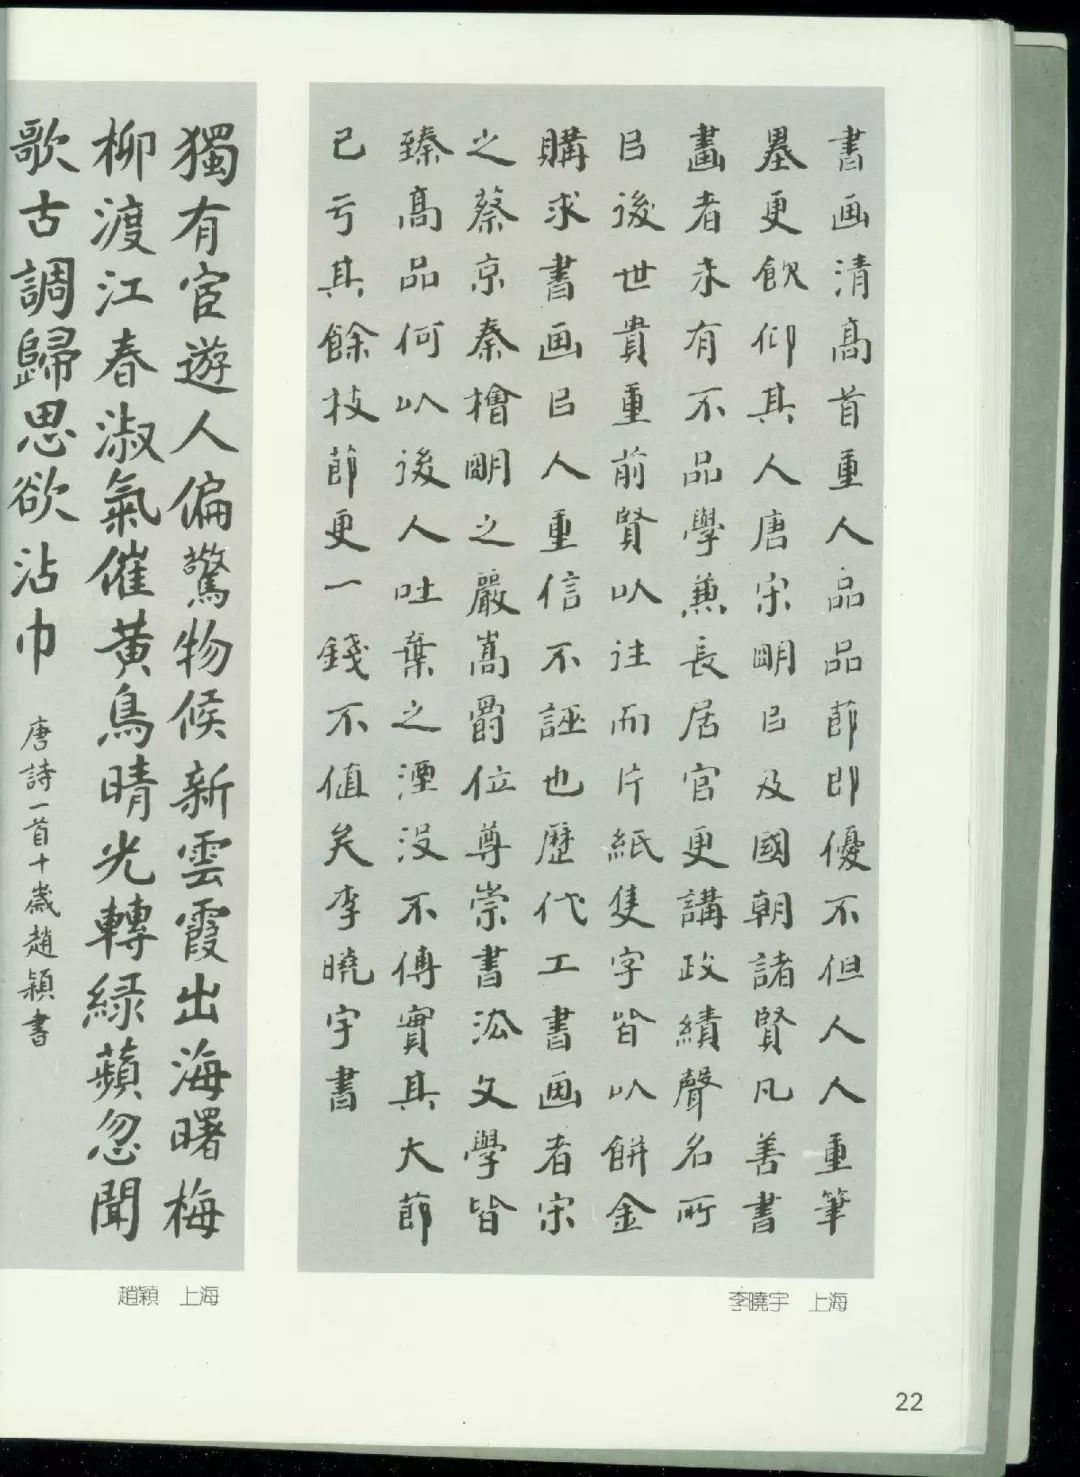 書画清高首重人品品節即優不但人人重筆
墨更飲仰其人唐宋明㠯及國朝諸賢凡善書
畫者未有不品學兼長居官更講政績聲名所
㠯後世貴重前賢以往而片紙隻字皆以餅金
購求書画㠯人重信不誣也歷代工書画者宋
之蔡京秦檜明之嚴嵩爵位尊崇書法文學皆
臻高品何以後人吐棄之湮沒不傳實其大節
已亏其餘枝節更一錢不值矣李曉宇書
李曉宇 上海
獨有宦遊人偏驚物候新雲霞出海曙梅
柳渡江春淑氣催黃鳥晴光轉緑蘋忽聞
歌古調歸思欲沾巾 唐詩一首十歲趙穎書
趙穎 上海
22